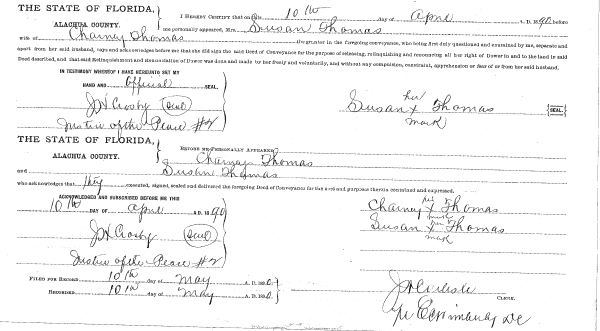 THE STATE OF FLORIDA,
ALACHUA COUNTY.
I HEREBY CERTIFY that on this 10th day of April A. D. 1890 before
me personally appeared, Mrs. Susan Thomas
wife of Charney Thomas the grantor in the foregoing conveyance, who being first duly questioned and examined by me, separate and
apart from her said husband, says and acknowledges before me that she did sign the said Deed of Conveyance for the purpose of releasing, relinquishing and renouncing all her right of Dower in and to the land in said
Deed described, and that said Relinquishment and Renunciation of Dower was done and made by her freely and voluntarily, and without any compulsion, constraint, apprehension or fear of or from her said husband.
IN TESTIMONY WHEREOF I HAVE HEREUNTO SET MY
HAND AND Official SEAL,
J H Crosby (Seal)
Justice of the Peace #2
her
Susan X Thomas (SEAL)
mark
THE STATE OF FLORIDA,
ALACHUA COUNTY.
BEFORE ME PERSONALLY APPEARED
Charney Thomas
and Susan Thomas
who acknowledges that they executed, signed, sealed and delivered the foregoing Deed of Conveyance for the uses and purposes therein contained and expressed,
ACKNOWLEDGED AND SUBSCRIBED BEFORE ME THIS
10th DAY OF April A. D. 1890
J H Crosby (Seal)
Justice of the Peace #2
his
Charney X Thomas
mark
her
Susan X Thomas
mark
FILED FOR RECORD 10th day of May A. D. 1890.
RECORDED 10th day of May A. D. 1890.
CLERK.
DC